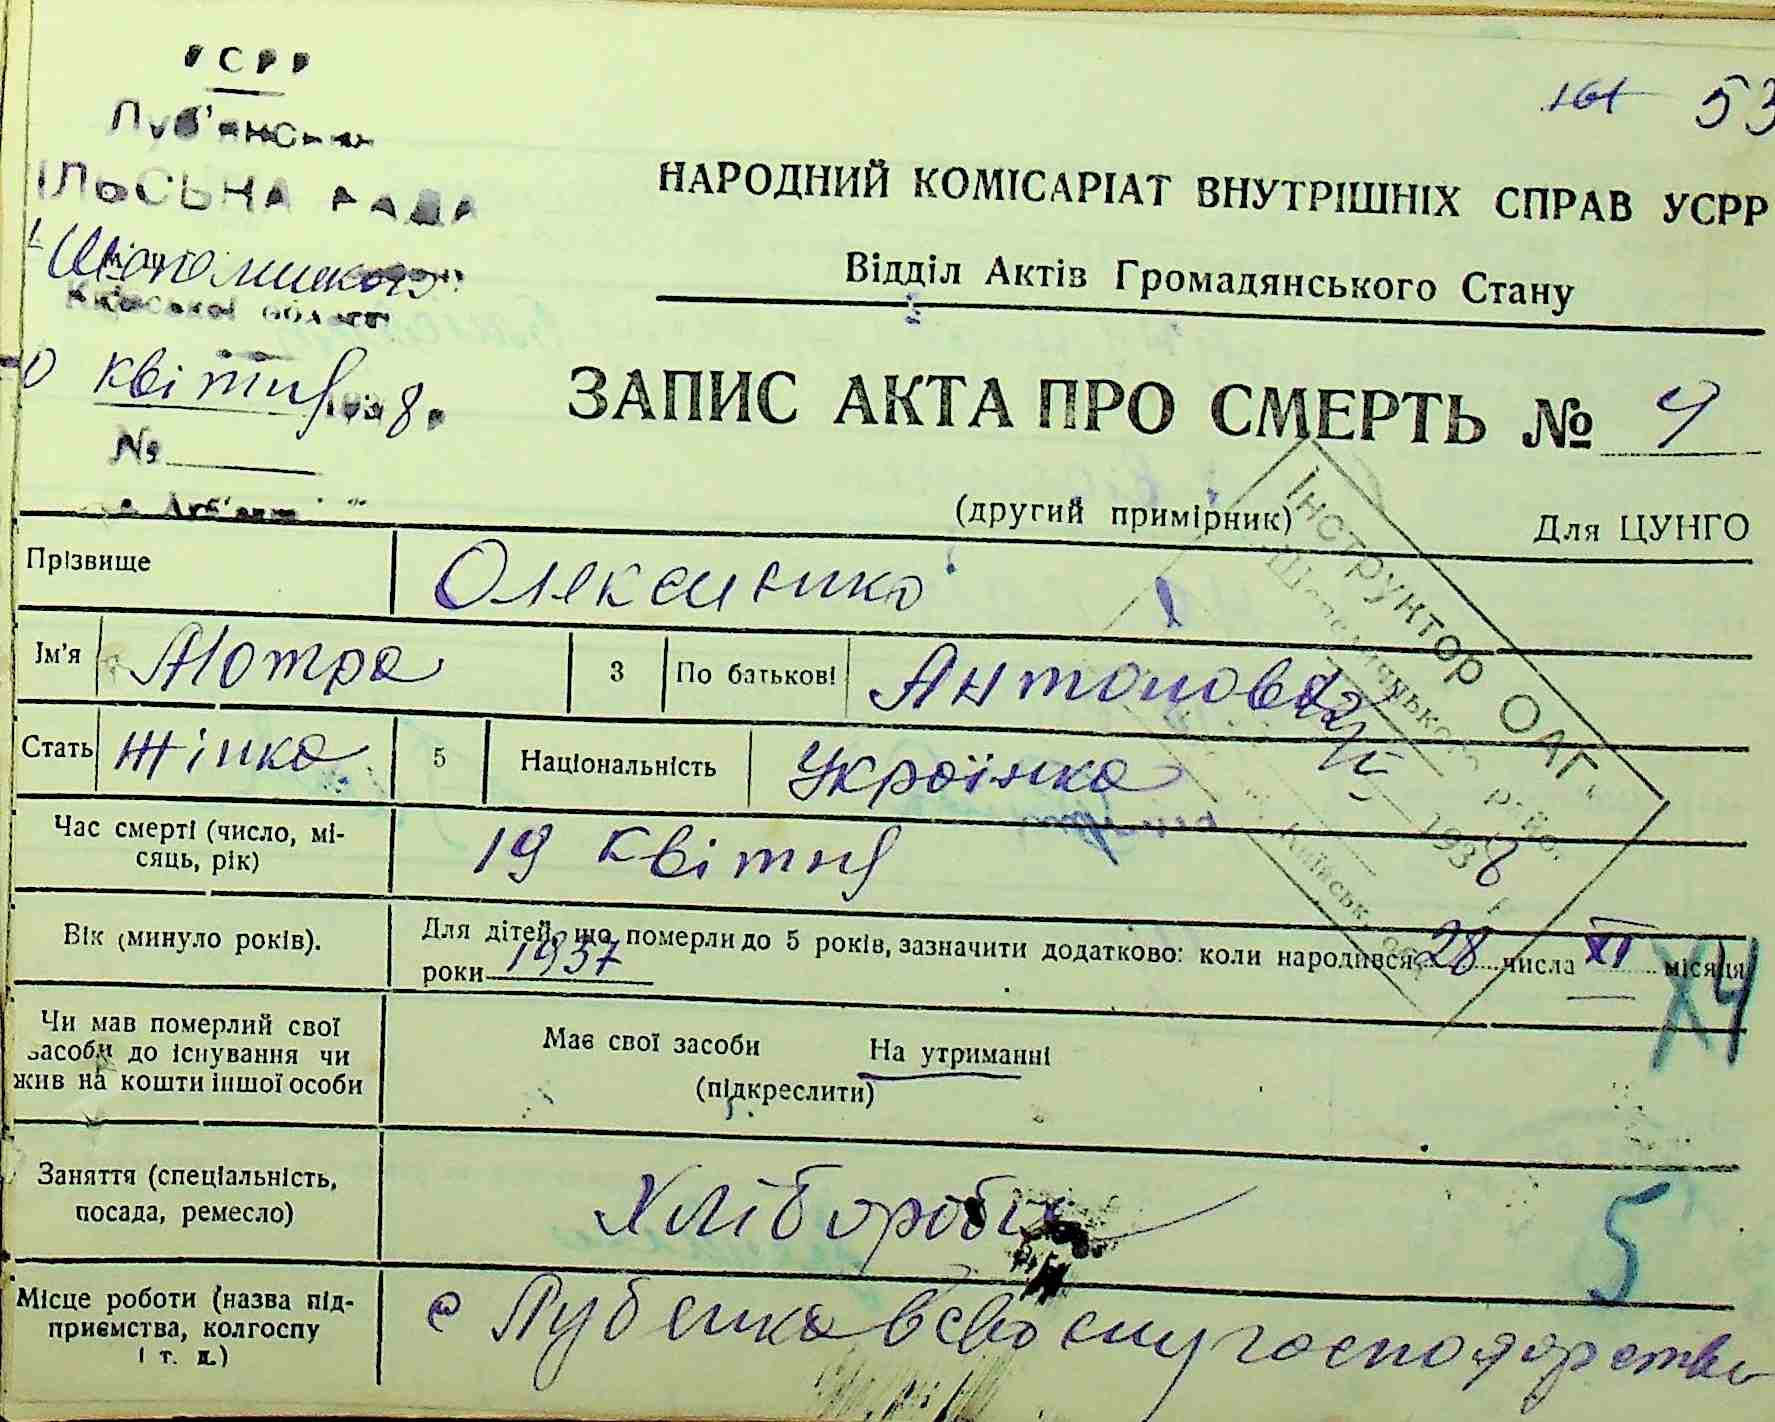 УСРР
161 53
Луб'янська
ІЛЬСЬКА РАДА
НАРОДНИЙ КОМІСАРІАТ ВНУТРІШНІХ СПРАВ УСРР
Відділ Актів Громадянського Стану
Київської області
квітня 1938 р.
ЗАПИС АКТА ПРО СМЕРТЬ № 4
№
(другий примірник) Для ЦУНГО
Інструктор ОАГ
1938 р.
Прізвище Олексієнко
Ім'я Мотря 3 По батькові Антонова
Стать Жінка 5 Національність Українка
Час смерті (число, мі-
сяць, рік) 19 квітня
Вік (минуло років). Для дітей, що померли до 5 років, зазначити додатково: коли народився 28 числа XI місяця
роки 1937
Х4
Чи мав померлий свої
засоби до існування чи
жив на кошти іншої особи
Має свої засоби На утриманні
(підкреслити)
Заняття (спеціальність,
посада, ремесло) Хлібороби
5
Місце роботи (назва під-
приємства, колгоспу
і т. д.)
с Лубянка в своєму господарстві